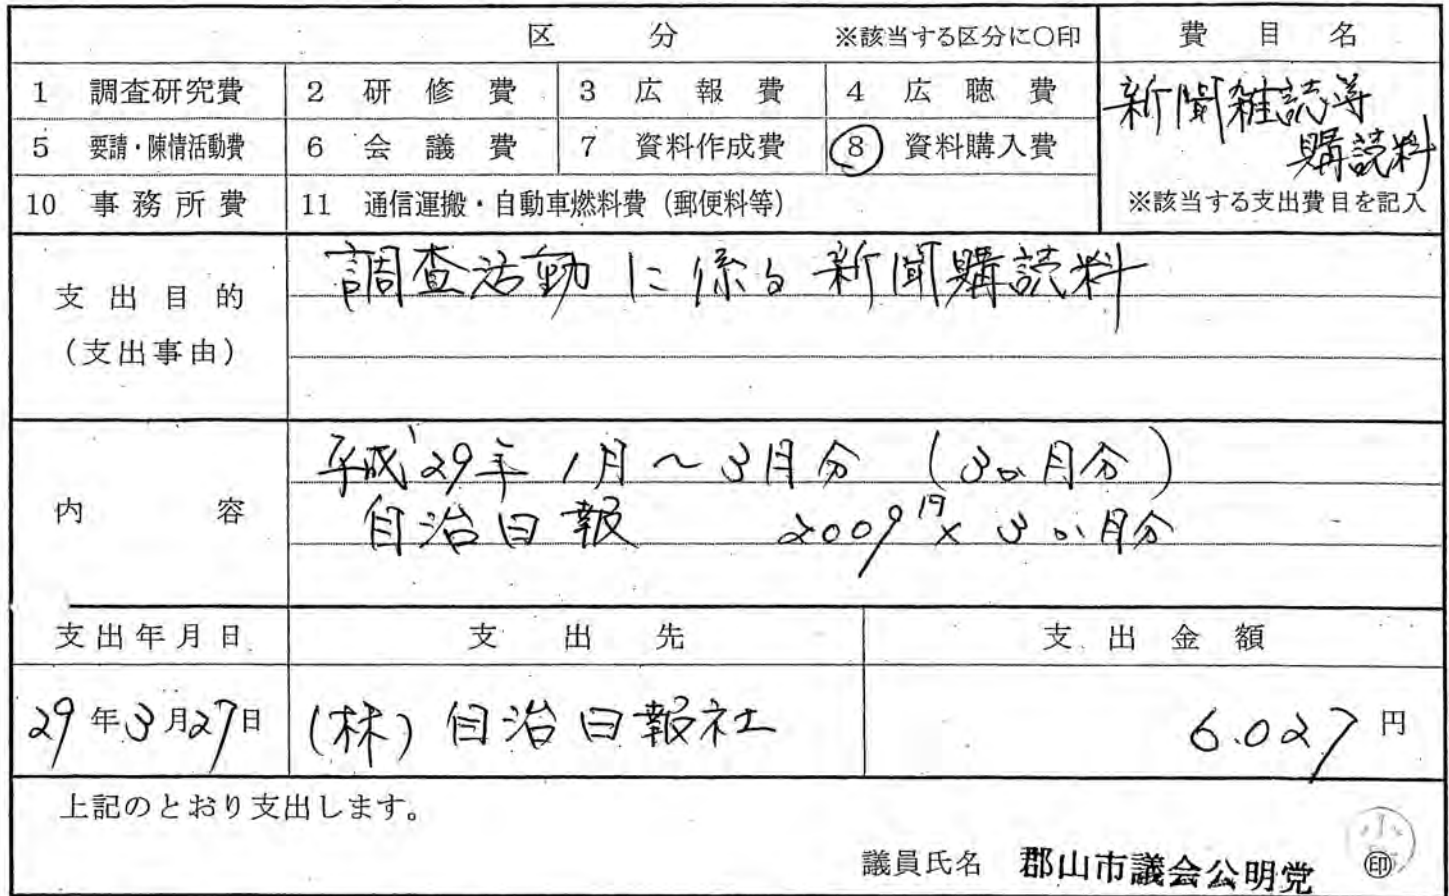 区 分 ※該当する区分に○印 費 目 名
1 調査研究費 2 研 修 費 3 広 報 費 4 広 聴 費
新聞雑読等
5 要請・陳情活動費 6 会 議 費 7 資料作成費 8 資料購入費
購読料
10 事 務 所 費 11 通信運搬・自動車燃料費（郵便料等） ※該当する支出費目を記入
支 出 目 的
(支出事由)
調査活動に係る新聞購読料
内 容
平成29年1月～3月分 (3ヵ月分)
自治日報 2009円×3ヵ月分
支出年月日 支 出 先 支 出 金 額
29年3月27日 (株)自治日報社 6.027円
上記のとおり支出します。
議員氏名 郡山市議会公明党 ㊞